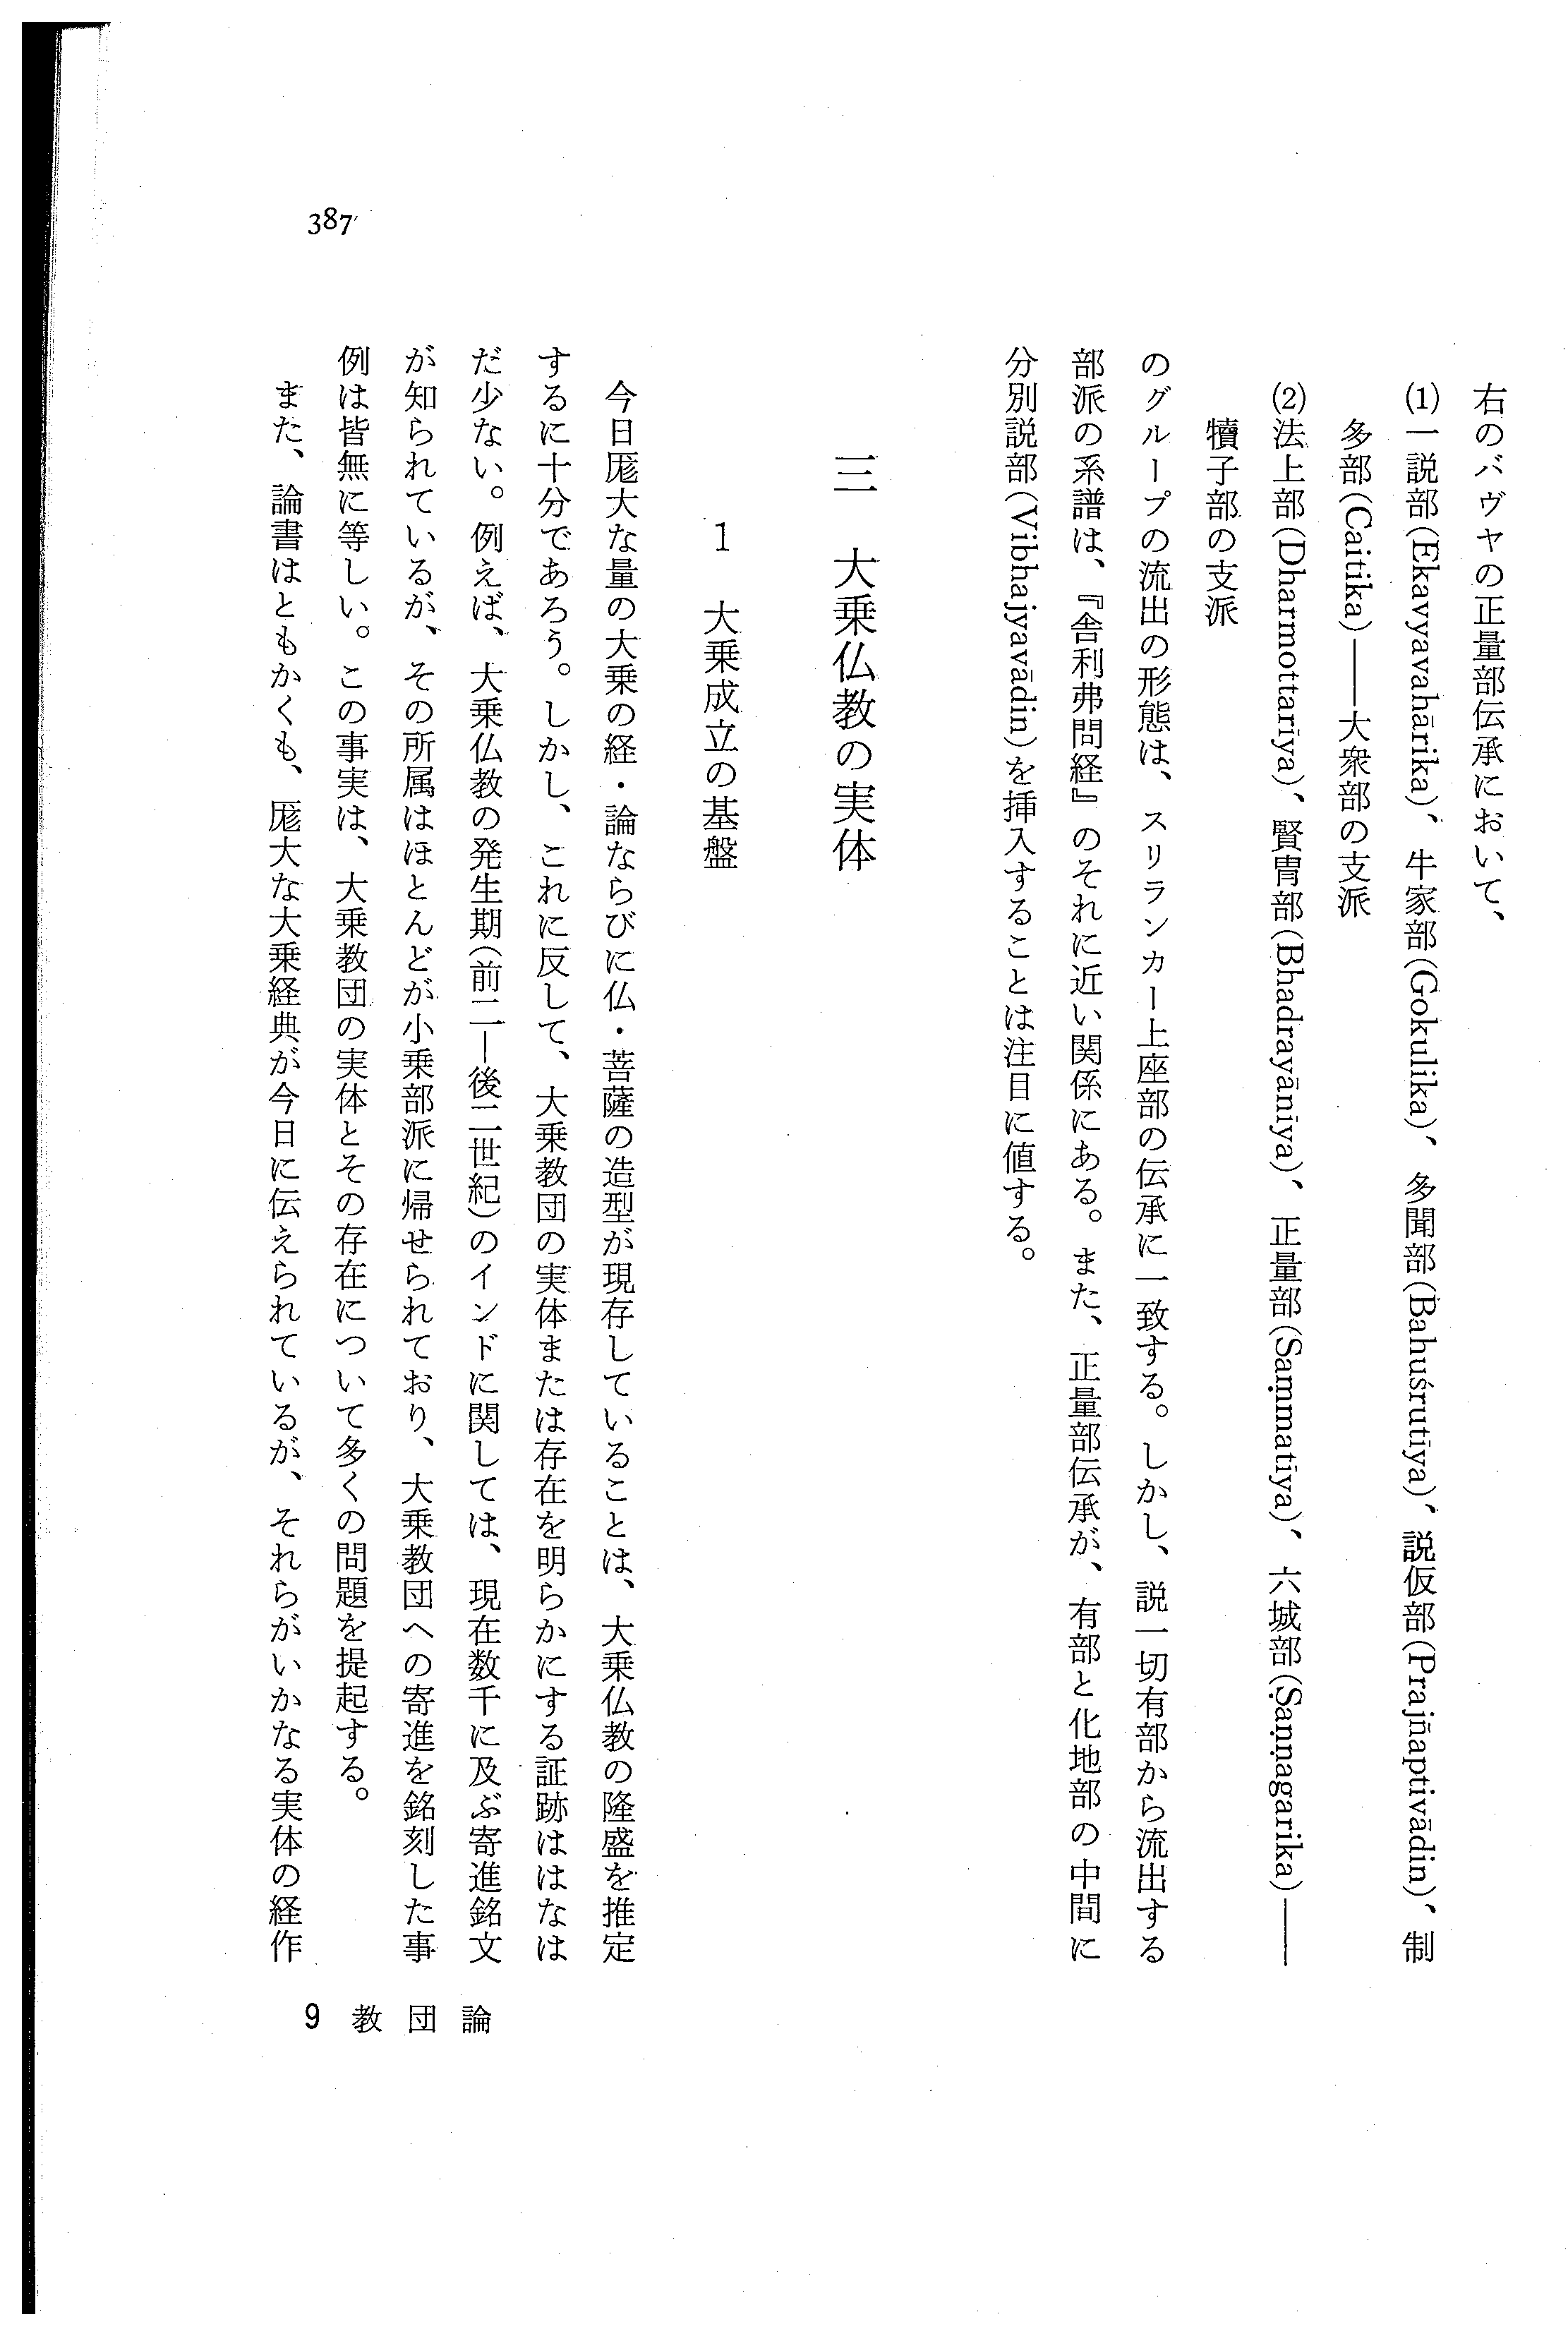 右のバヴヤの正量部伝承において、
(1)一説部(Ekavyavahārika)、牛家部(Gokulika)、多聞部(Bahuśrutīya)、説仮部(Prajñaptivādin)、制
多部(Caitika)――大衆部の支派
(2)法上部(Dharmottarīya)、賢冑部(Bhadrayānīya)、正量部(Saṃmatīya)、六城部(Ṣaṇṇagarika)――
犢子部の支派
のグループの流出の形態は、スリランカー上座部の伝承に一致する。しかし、説一切有部から流出する
部派の系譜は、『舎利弗問経』のそれに近い関係にある。また、正量部伝承が、有部と化地部の中間に
分別説部(Vibhajyavādin)を挿入することは注目に値する。
三 大乗仏教の実体
1 大乗成立の基盤
今日厖大な量の大乗の経・論ならびに仏・菩薩の造型が現存していることは、大乗仏教の隆盛を推定
するに十分であろう。しかし、これに反して、大乗教団の実体または存在を明らかにする証跡ははなは
だ少ない。例えば、大乗仏教の発生期(前二―後二世紀)のインドに関しては、現在数千に及ぶ寄進銘文
が知られているが、その所属はほとんどが小乗部派に帰せられており、大乗教団への寄進を銘刻した事
例は皆無に等しい。この事実は、大乗教団の実体とその存在について多くの問題を提起する。
また、論書はともかくも、厖大な大乗経典が今日に伝えられているが、それらがいかなる実体の経作
387
9 教団論